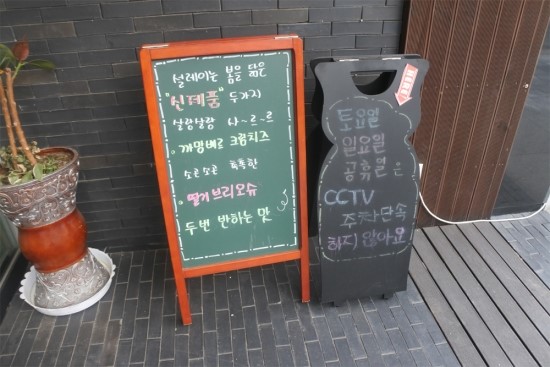 설레이는 봄을 닮은
"신제품" 두가지
살랑살랑 사~르~르
"까망베르 크림치즈
소곤소곤 톡톡한
"딸기 브리오슈
두번 반하는 맛
HERE
토요일
일요일
공휴일은
CCTV
주차단속
하지 않아요